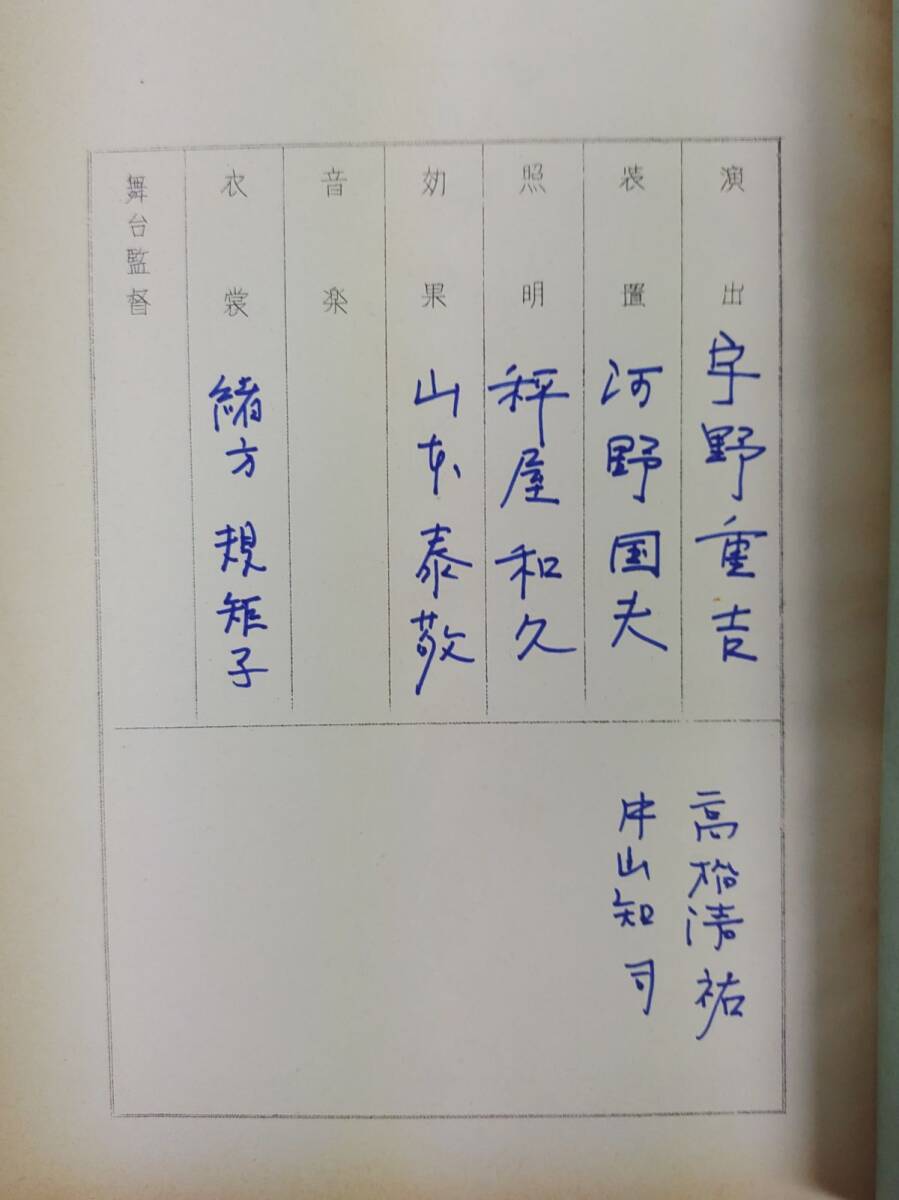 演出 宇野重吉
装置 河野国夫
照明 秤屋和久
効果 山本泰敬
音楽
衣裳 緒方規矩子
舞台監督
高橋清祐
中山知司